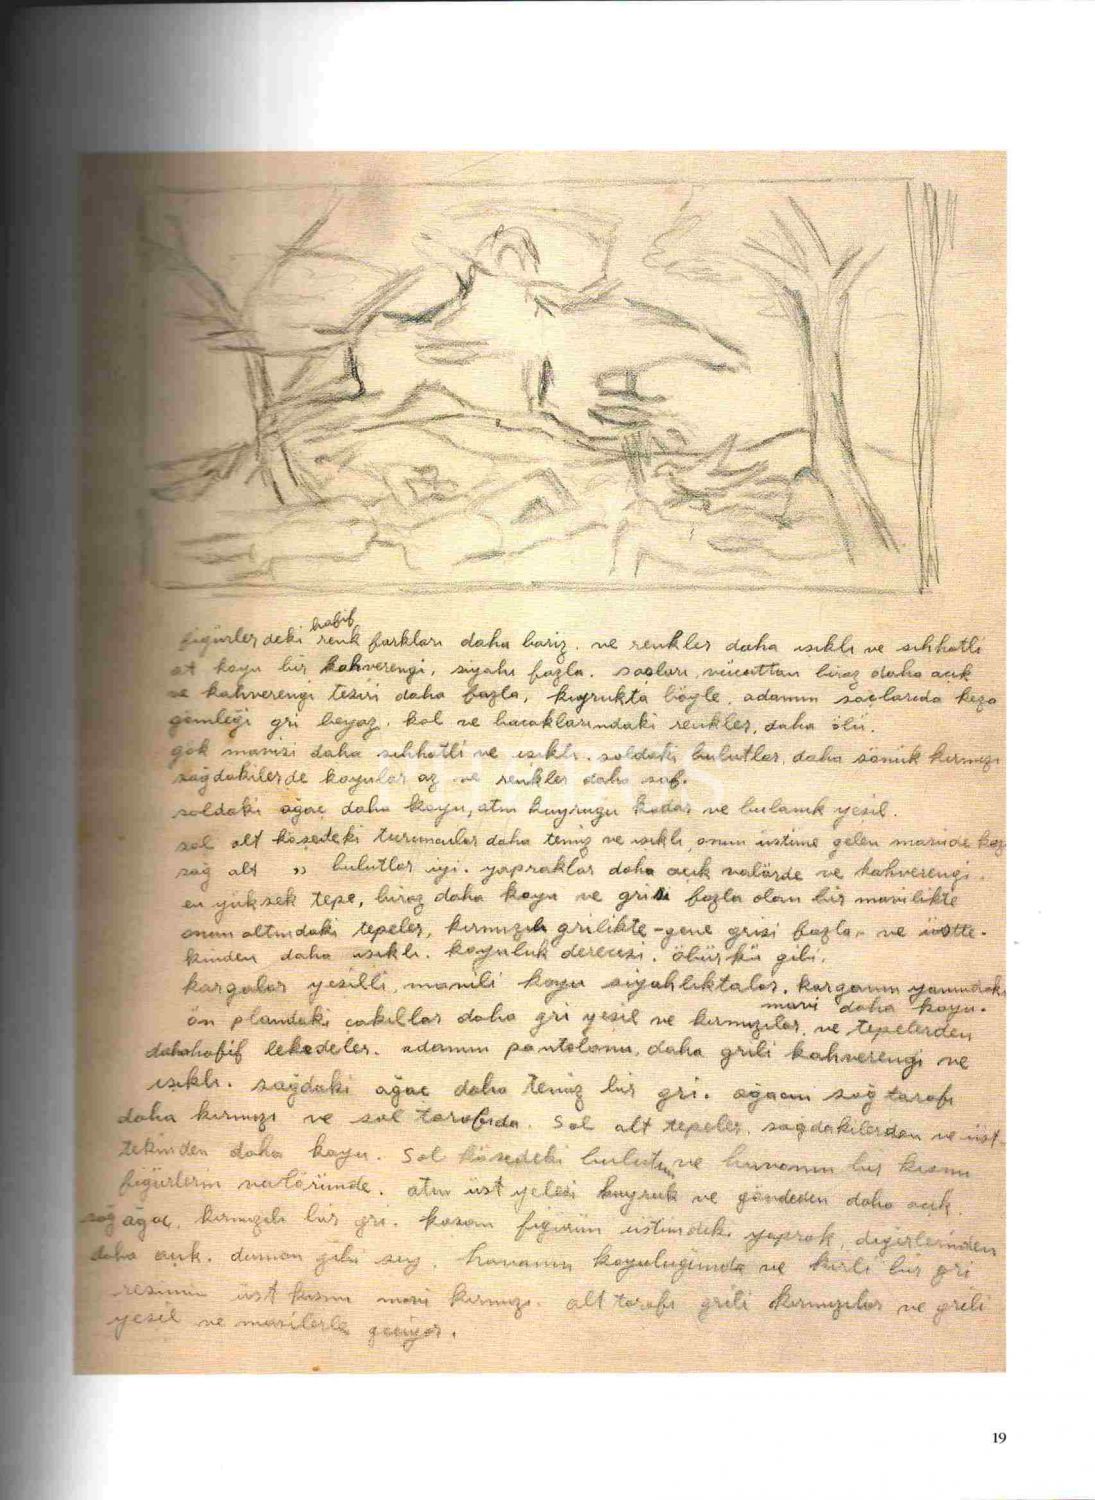 hafif
figürlerdeki renk farkları daha bariz. ve renkler daha ışıklı ve sıhhatli
at koyu bir kahverengi, siyahı fazla. saçları, vücuttan biraz daha açık
ve kahverengi tesiri daha fazla, kuyrukta böyle. adamın saçlarıda keza
gömleği gri beyaz. kol ve bacaklarındaki renkler, daha ölü.
gök mavisi daha sıhhatli ve ışıklı. soldaki bulutlar, daha sönük kırmızı
sağdakilerde koyular az ve renkler daha saf.
soldaki ağaç daha koyu, atın kuyruğu kadar ve bulanık yeşil.
sol alt köşedeki turuncular daha temiz ve ışıklı onun üstüne gelen mavide
sağ alt " bulutlar iyi. yapraklar daha açık valörde ve kahverengi.
en yüksek tepe, biraz daha koyu ve grisi fazla olan bir mavilikte
onun altındaki tepeler, kırmızılı grilikte - gene grisi fazla - ve üstte-
kinden daha ışıklı. koyuluk derecesi. öbürkü gibi.
kargalar yeşilli, mavili koyu siyahlıktalar. karganın yanındaki
mavi daha koyu.
ön plandaki çakıllar daha gri yeşil ve kırmızılar, ve tepelerden
daha hafif lekedeler. adamın pantolonu, daha grili kahverengi ve
ışıklı. sağdaki ağaç daha temiz bir gri. ağacın sağ tarafı
daha kırmızı ve sol tarafıda. Sol alt tepeler, sağdakilerden ve üst-
tekinden daha koyu. Sol köşedeki bulutun ve havanın bir kısmı
figürlerin valöründe. atın üst yelesi kuyruk ve gövdeden daha açık.
sağ ağaç, kırmızılı bir gri. koşan figürün üstündeki yaprak, diğerlerinden
daha açık. duman gibi şey, havanın koyuluğunda ve kirli bir gri
resmin üst kısmı mavi kırmızı. alt tarafı grili kırmızılar ve grili
yeşil ve mavilerle geçiyor.
19